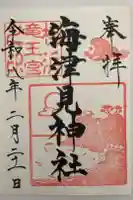 奉拝
海津見神社
竜王宮
令和八年 二月二十一日